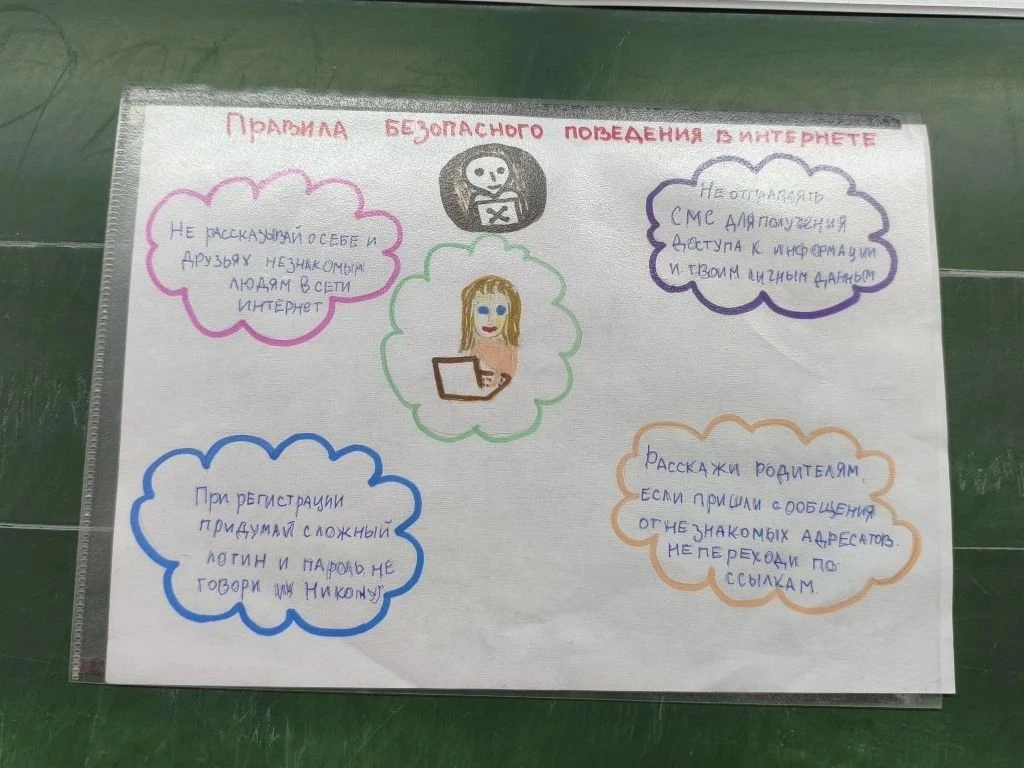 ПРАВИЛА БЕЗОПАСНОГО ПОВЕДЕНИЯ В ИНТЕРНЕТЕ
НЕ РАССКАЗЫВАЙ О СЕБЕ И
ДРУЗЬЯХ НЕЗНАКОМЫМ
ЛЮДЯМ В СЕТИ
ИНТЕРНЕТ
НЕ ОТПРАВЛЯТЬ
СМС ДЛЯ ПОЛУЧЕНИЯ
ДОСТУПА К ИНФОРМАЦИИ
И ТВОИМ ЛИЧНЫМ ДАННЫМ
ПРИ РЕГИСТРАЦИИ
ПРИДУМАЙ СЛОЖНЫЙ
ЛОГИН И ПАРОЛЬ, НЕ
ГОВОРИ ИХ НИКОМУ
РАССКАЖИ РОДИТЕЛЯМ,
ЕСЛИ ПРИШЛИ СООБЩЕНИЯ
ОТ НЕЗНАКОМЫХ АДРЕСАТОВ.
НЕ ПЕРЕХОДИ ПО
ССЫЛКАМ.